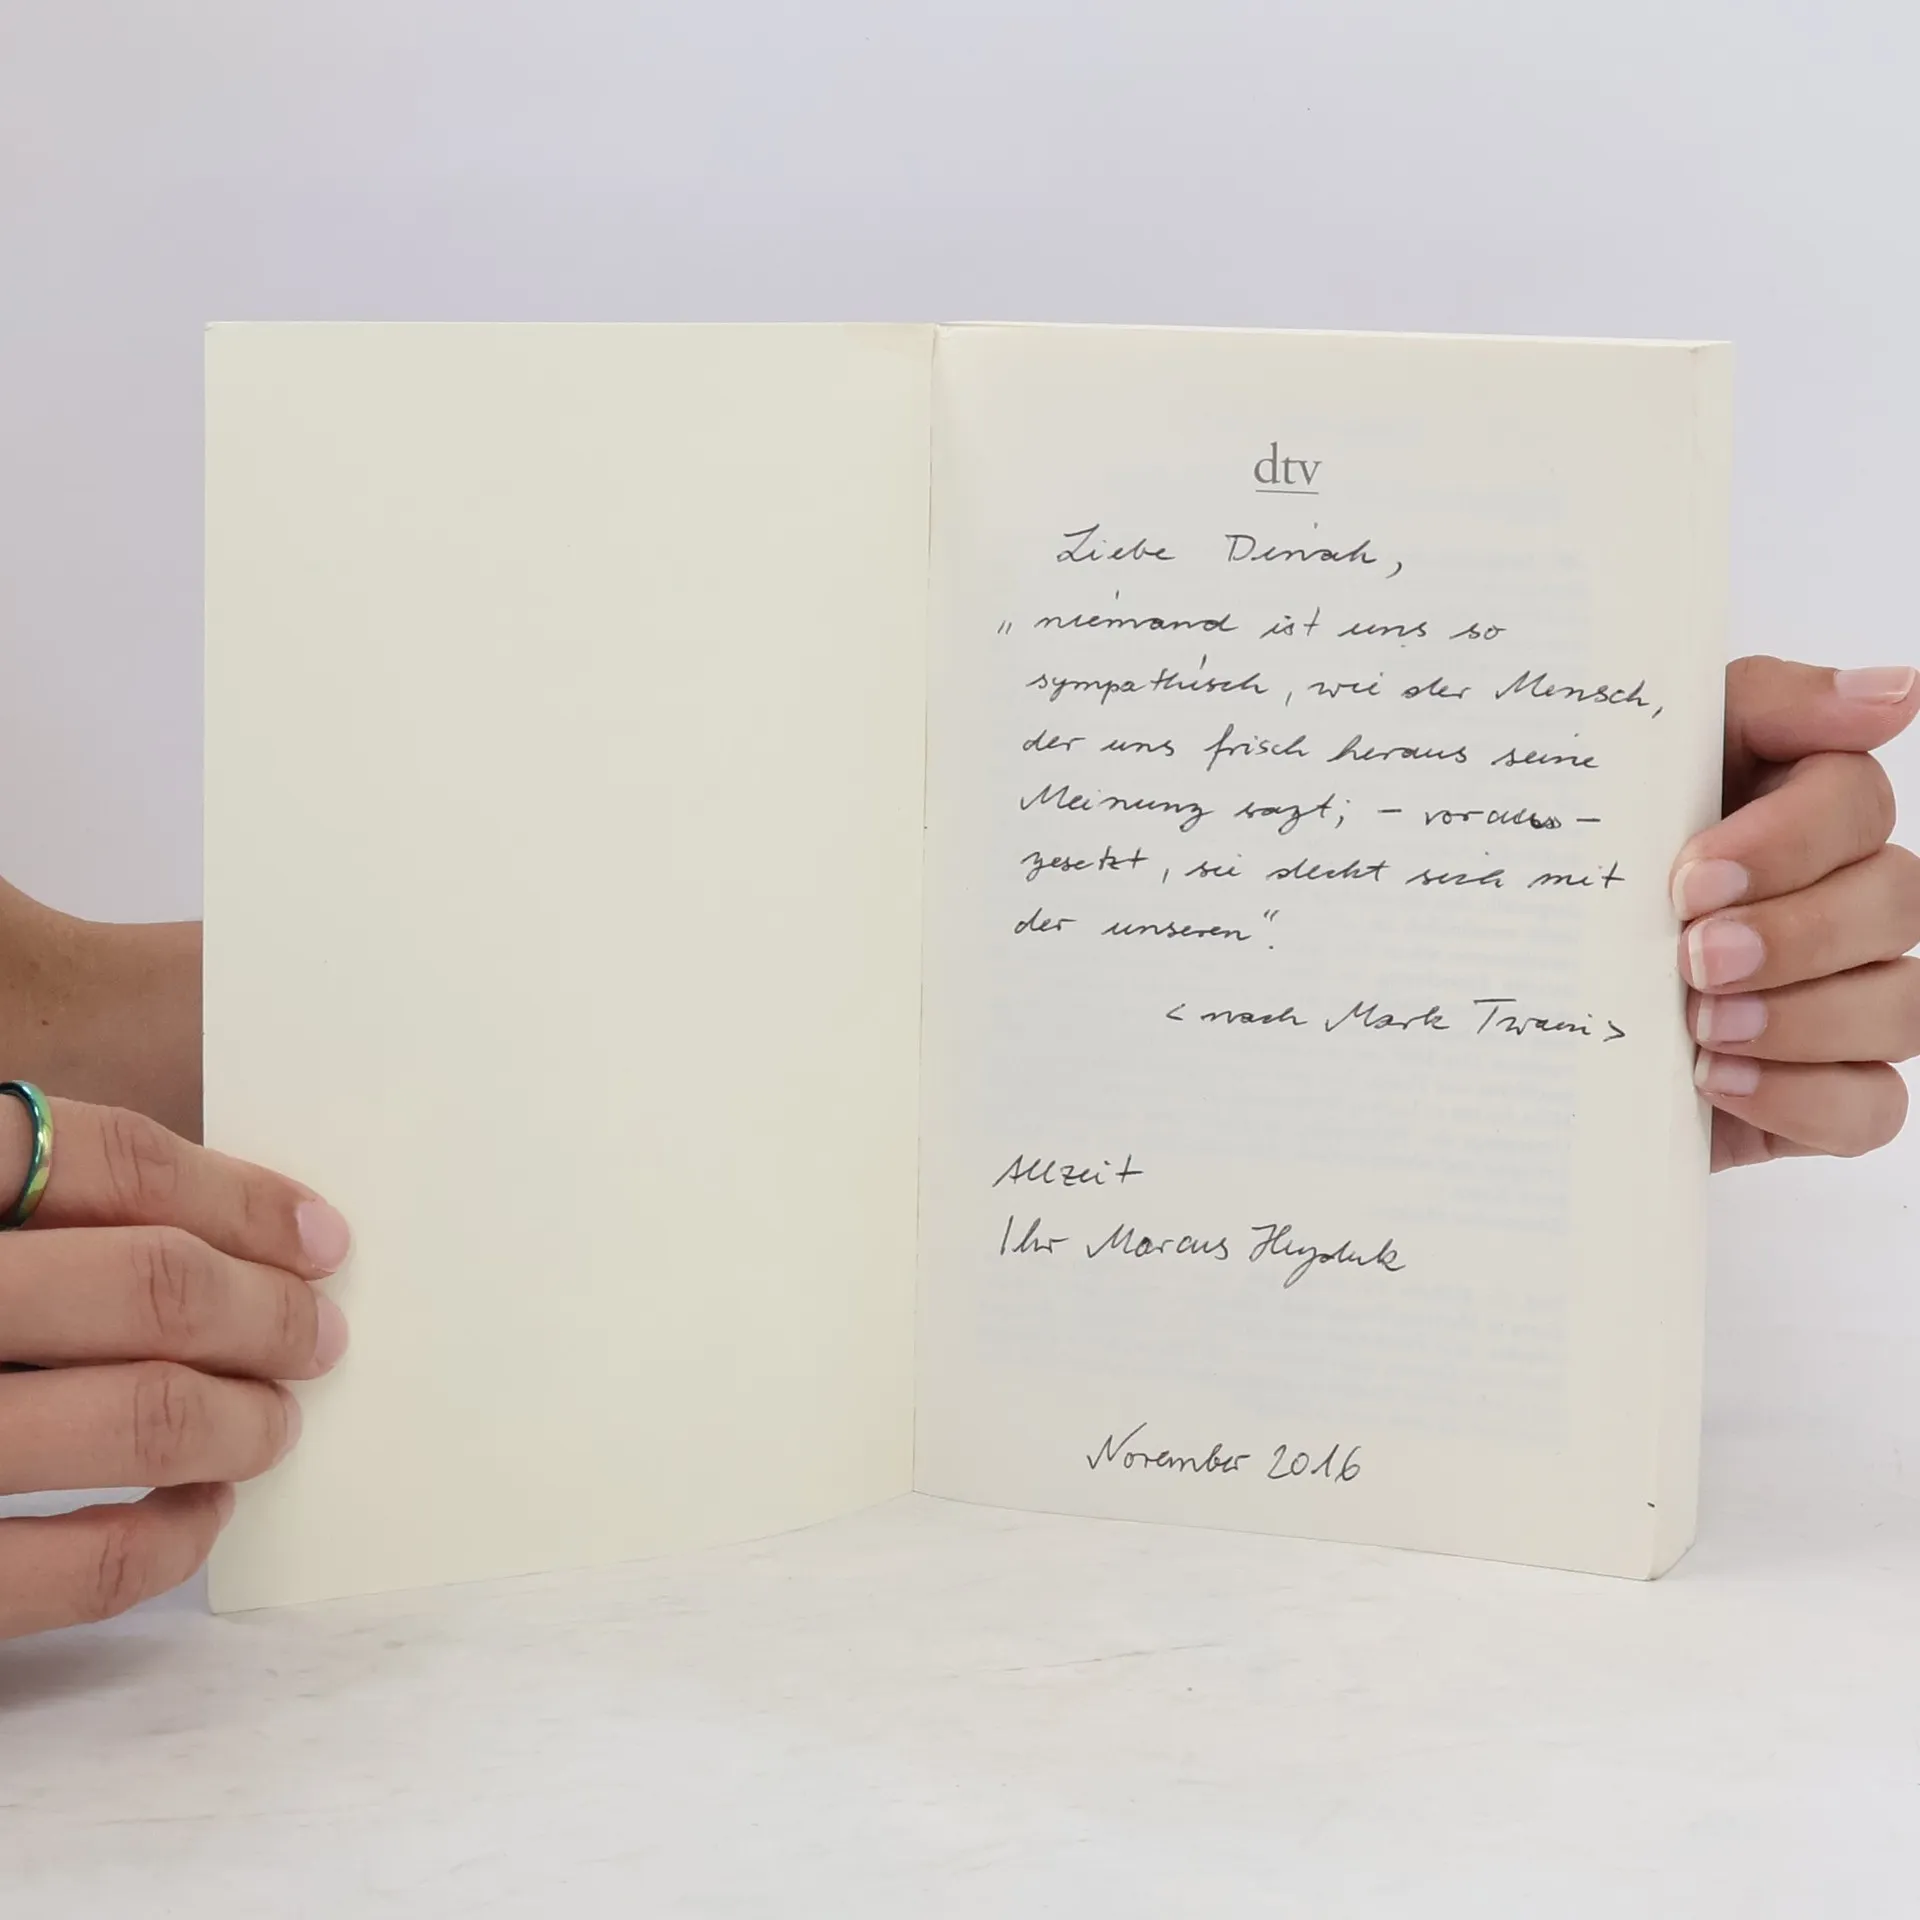 dtv
Liebe Dinah,
„niemand ist uns so
sympathisch, wie der Mensch,
der uns frisch heraus seine
Meinung sagt; – voraus-
gesetzt, sie deckt sich mit
der unseren“.
<nach Mark Twain>
Allzeit
Ihr Marcus Heyduk
November 2016